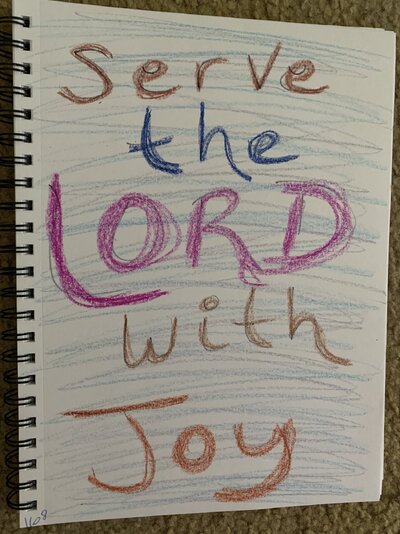 Serve
the
LORD
with
Joy
1108